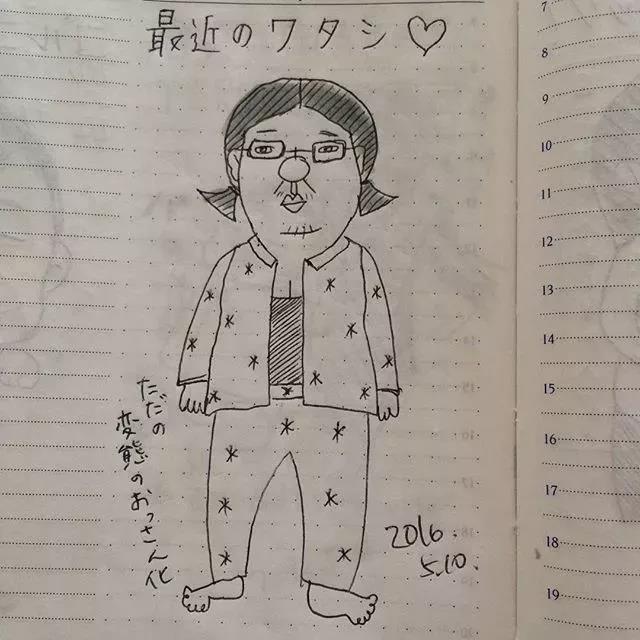 最近のワタシ♡
ただの
変態のおっさん化
2016.
5.10.
7
8
9
10
11
12
13
14
15
16
17
18
19